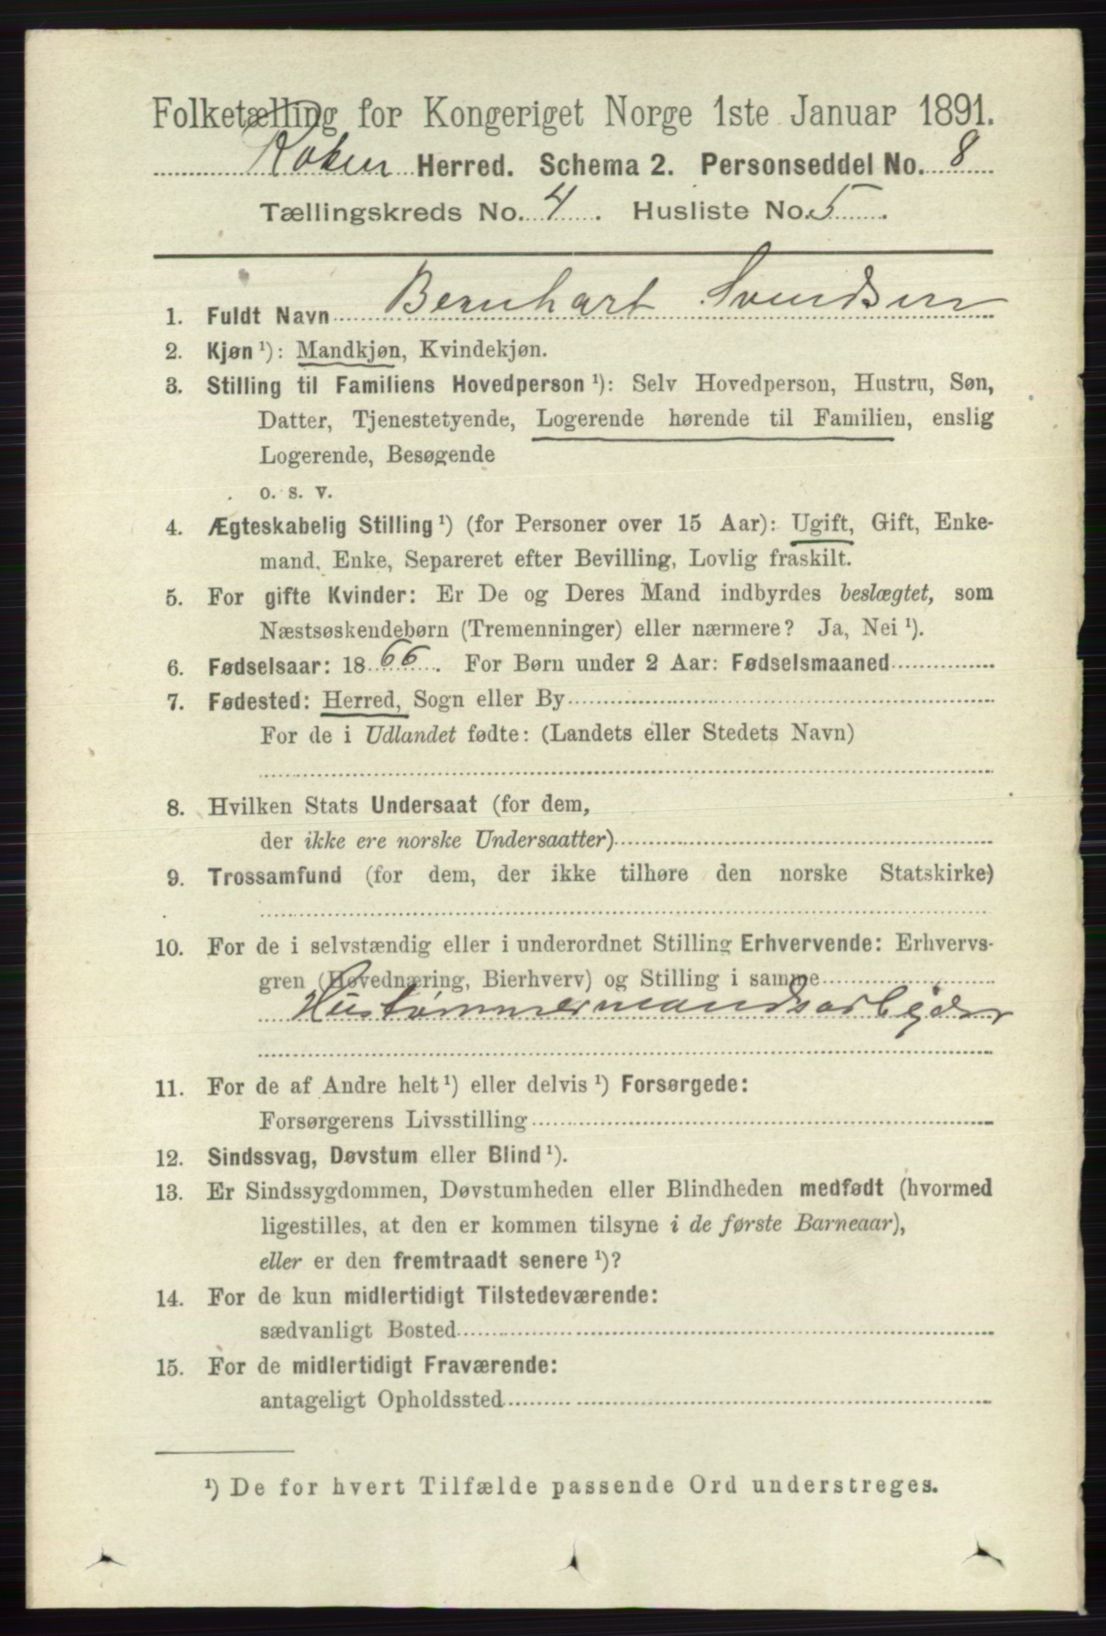 Folketælling for Kongeriget Norge 1ste Januar 1891.
Røken Herred. Schema 2. Personseddel No. 8
Tællingskreds No. 4. Husliste No. 5.
1. Fuldt Navn Bernhart Svendsen
2. Kjøn ¹): Mandkjøn, Kvindekjøn.
3. Stilling til Familiens Hovedperson ¹): Selv Hovedperson, Hustru, Søn,
Datter, Tjenestetyende, Logerende hørende til Familien, enslig
Logerende, Besøgende
o. s. v.
4. Ægteskabelig Stilling ¹) (for Personer over 15 Aar): Ugift, Gift, Enke-
mand, Enke, Separeret efter Bevilling, Lovlig fraskilt.
5. For gifte Kvinder: Er De og Deres Mand indbyrdes beslægtet, som
Næstsøskendebørn (Tremenninger) eller nærmere? Ja, Nei ¹).
6. Fødselsaar: 1866. For Børn under 2 Aar: Fødselsmaaned
7. Fødested: Herred, Sogn eller By
For de i Udlandet fødte: (Landets eller Stedets Navn)
8. Hvilken Stats Undersaat (for dem,
der ikke ere norske Undersaatter)
9. Trossamfund (for dem, der ikke tilhøre den norske Statskirke)
10. For de i selvstændig eller i underordnet Stilling Erhvervende: Erhvervs-
gren (Hovednæring, Bierhverv) og Stilling i samme
Hustømmermandsarbejder
11. For de af Andre helt ¹) eller delvis ¹) Forsørgede:
Forsørgerens Livsstilling
12. Sindssvag, Døvstum eller Blind ¹).
13. Er Sindssygdommen, Døvstumheden eller Blindheden medfødt (hvormed
ligestilles, at den er kommen tilsyne i de første Barneaar),
eller er den fremtraadt senere ¹)?
14. For de kun midlertidigt Tilstedeværende:
sædvanligt Bosted
15. For de midlertidigt Fraværende:
antageligt Opholdssted
¹) De for hvert Tilfælde passende Ord understreges.